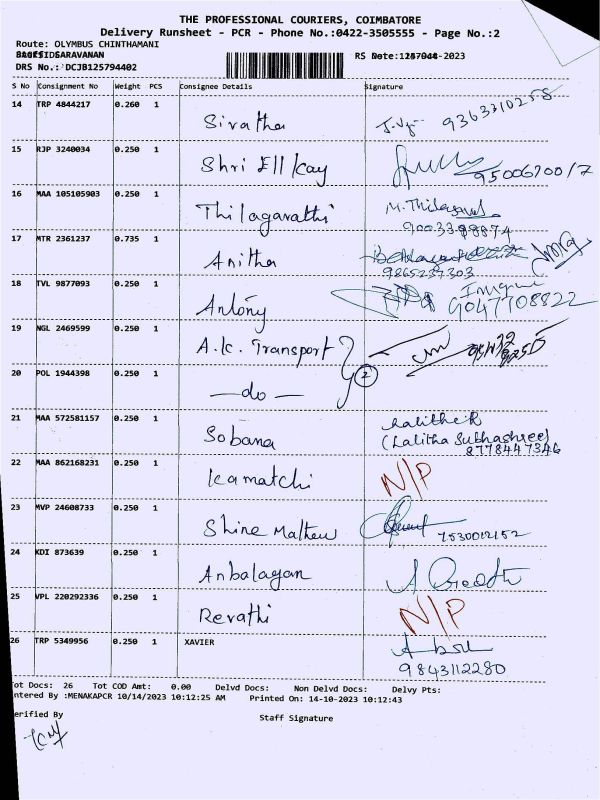 THE PROFESSIONAL COURIERS, COIMBATORE
Delivery Runsheet - PCR - Phone No.:0422-3505555 - Page No.:2
Route: OLYMBUS CHINTHAMANI
SARAVANAN
RS Date: -2023
DRS No.: DCJB125794402
S No Consignment No Weight PCS Consignee Details Signature
14 TRP 4844217 0.260 1 Sivatha 9363310258
15 RJP 3240034 0.250 1 Shri Ell Kay
16 MAA 105105903 0.250 1 Thilagavathi M. Thilagavathi
17 MTR 2361237 0.735 1 Anitha
9865237303
18 TVL 9877093 0.250 1 Antony 9047708822
19 NGL 2469599 0.250 1 A.K. Transport
20 POL 1944398 0.250 1 — do — 2
21 MAA 572581157 0.250 1 Sobana Lalitha R
(Lalitha Subhashree)
8778447346
22 MAA 862168231 0.250 1 Kamatchi N/P
23 MVP 24608733 0.250 1 Shine Mathew 7530012152
24 KDI 873639 0.250 1 Anbalagan
25 VPL 220292336 0.250 1 Revathi N/P
26 TRP 5349956 0.250 1 XAVIER
9843112280
ot Docs: 26 Tot COD Amt: 0.00 Delvd Docs: Non Delvd Docs: Delvy Pts:
ntered By :MENAKAPCR 10/14/2023 10:12:25 AM Printed On: 14-10-2023 10:12:43
erified By
Staff Signature